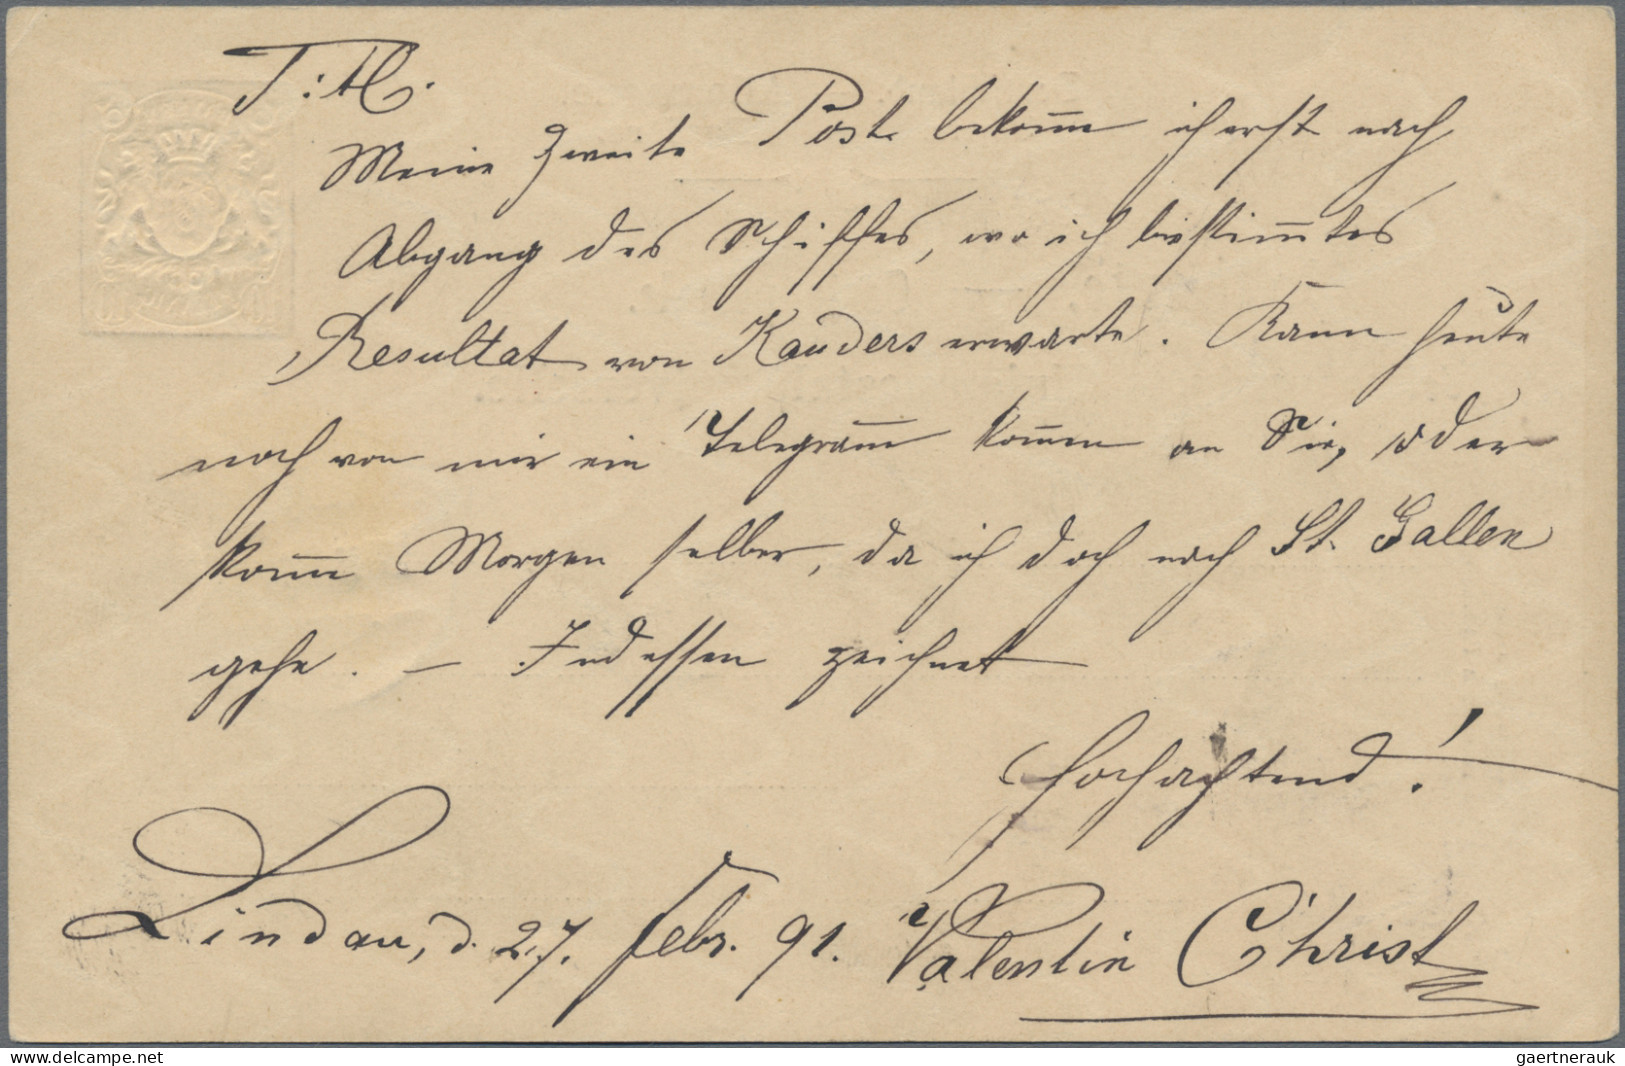 T: tl.
Meine zweite Post bekom̅e ich erst nach
Abgang des Schiffes, wo ich bestim̅tes
Resultat von Kauders erwarte. Kann heute
noch von mir ein Telegram̅ kom̅en an Sie, oder
kom̅e Morgen selber, da ich doch nach St. Gallen
gehe. — Indessen zeichnet
Hochachtend!
Lindau, d. 27. Febr. 91. Valentin Christ
gaertnerauk